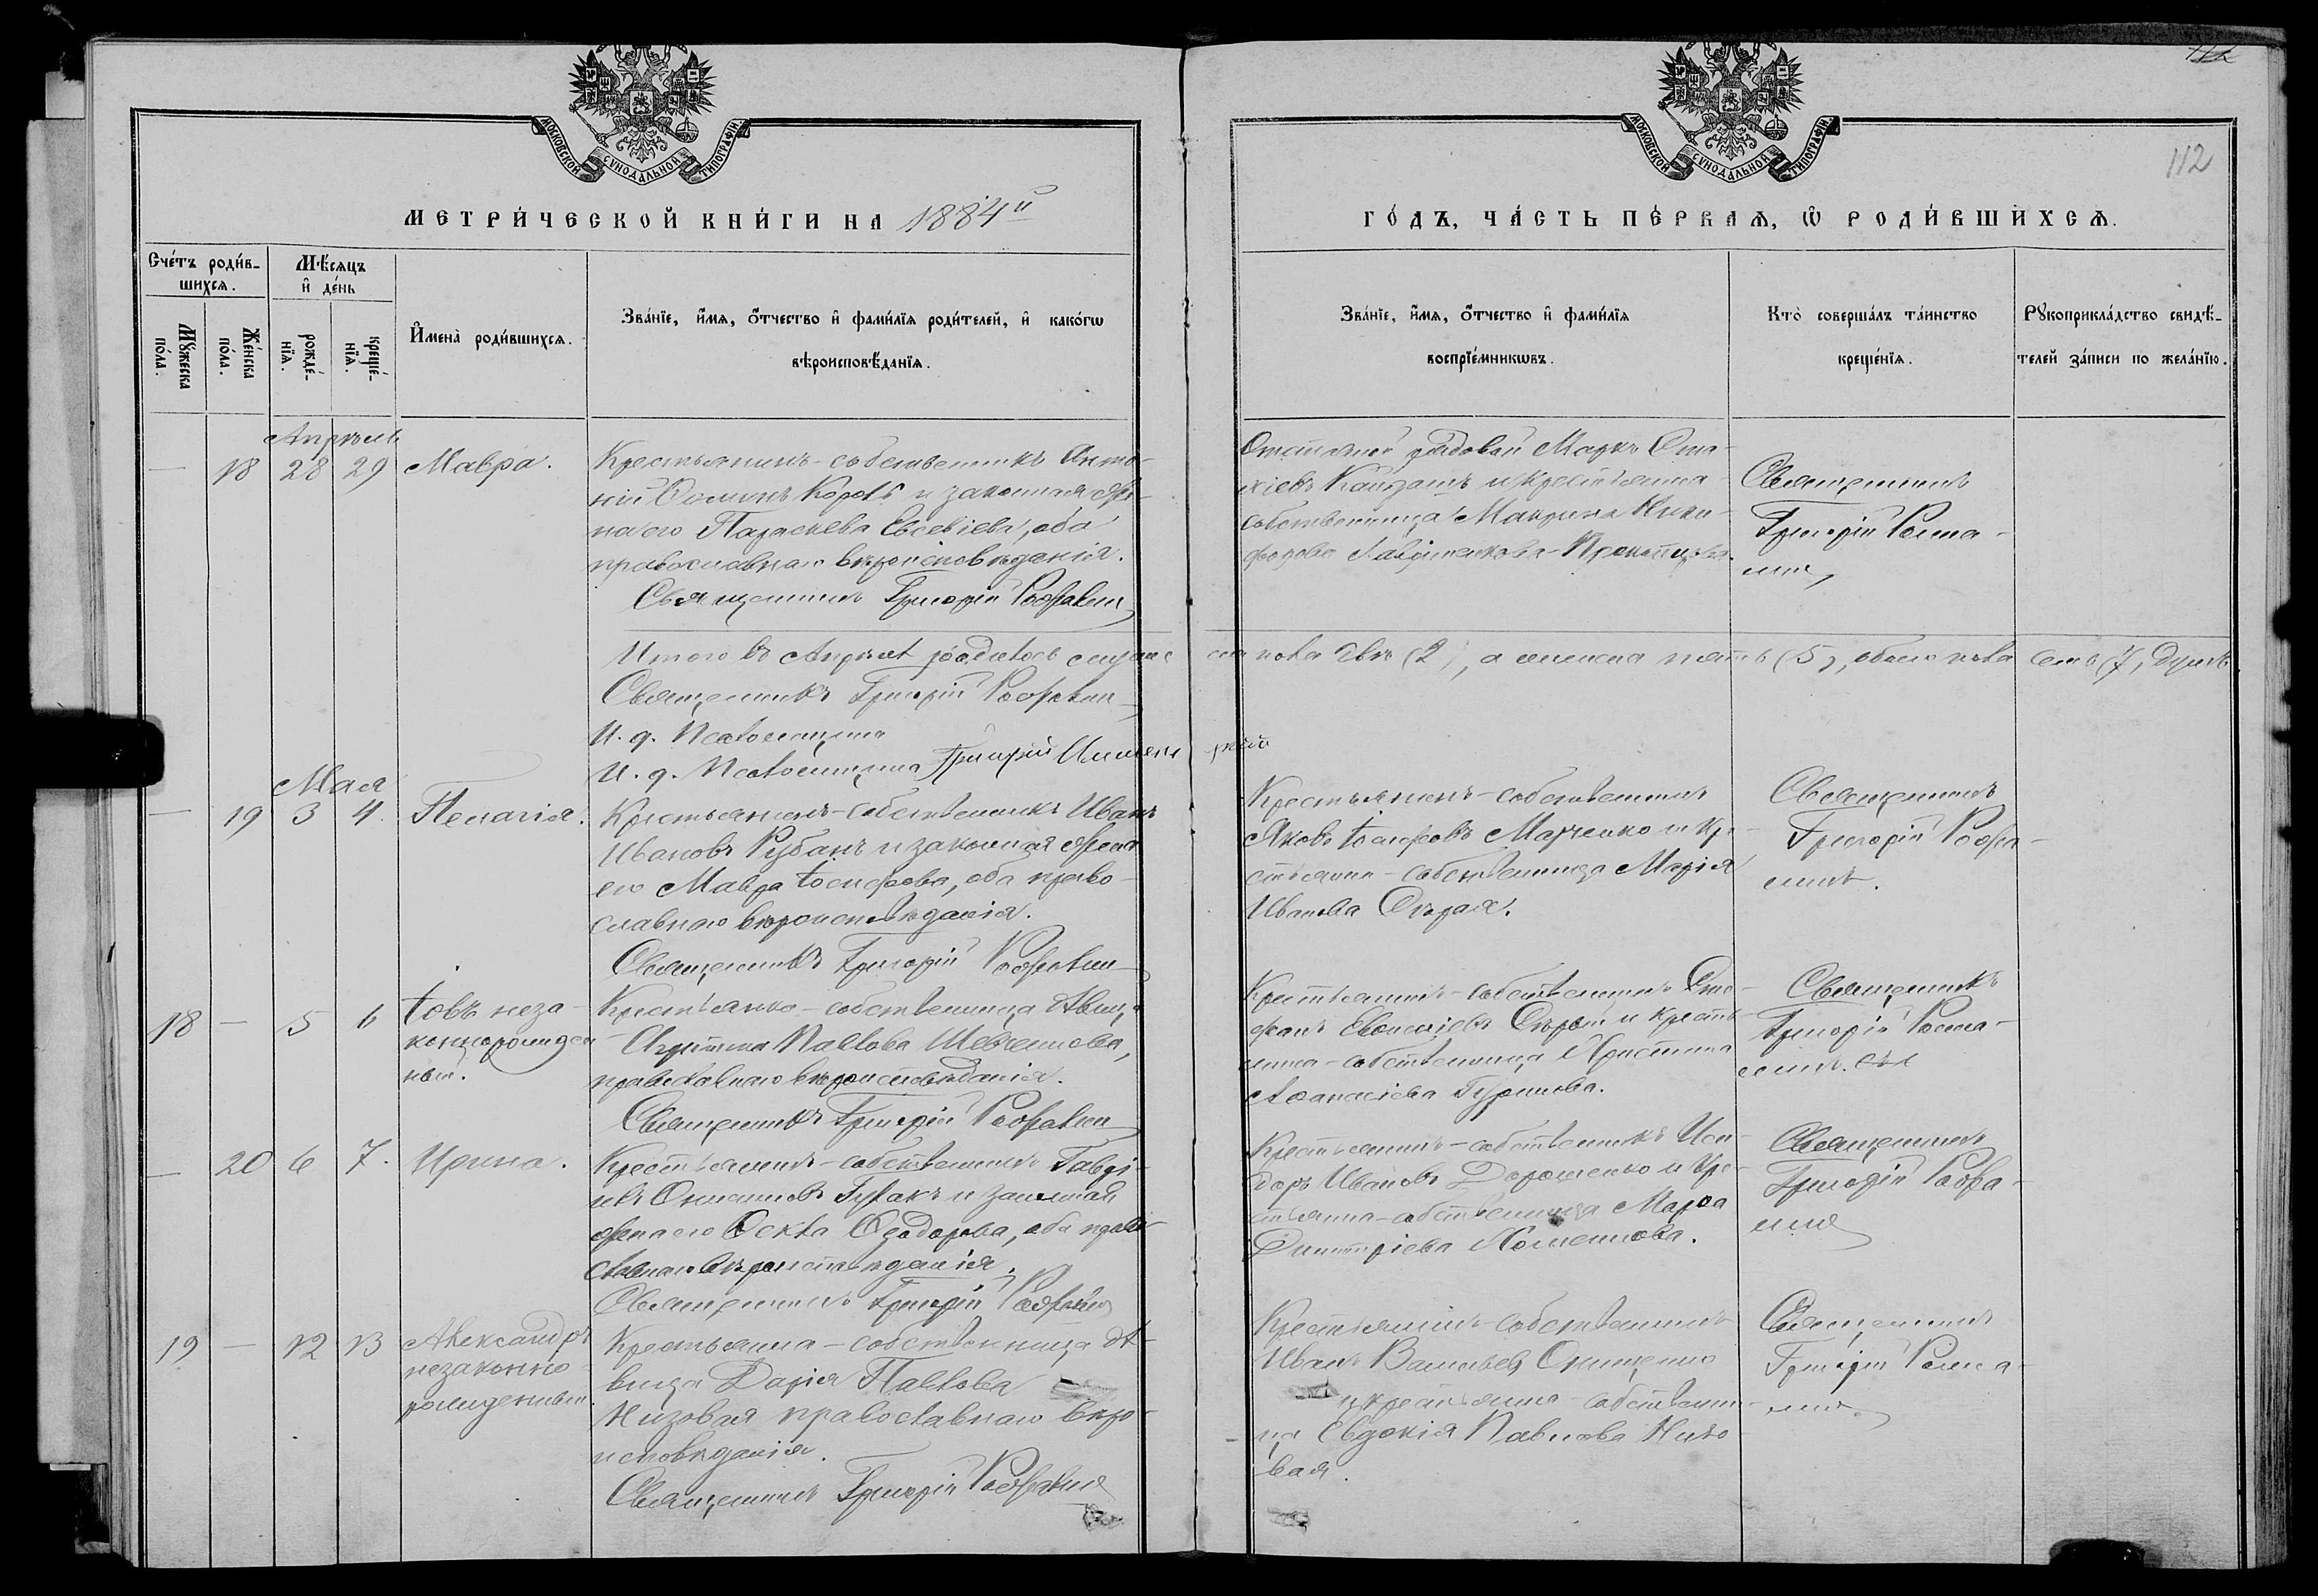 112
МОСКОВСКОЙ СѴНОДАЛЬНОЙ ТИПОГРАФІИ
МОСКОВСКОЙ СѴНОДАЛЬНОЙ ТИПОГРАФІИ
МЕТРИ́ЧЕСКОЙ КНИ́ГИ НА 1884й
ГО́ДЪ, ЧА́СТЬ ПЕ́РВАѦ, Ѡ҆ РОДИ́ВШИХСѦ.
Сче́тъ роди́в-
шихсѧ.
Мꙋ́жеска
по́ла.
Же́нска
по́ла.
Мѣ́сѧцъ
и҆ де́нь
рожде́-
нїѧ.
креще́-
нїѧ.
И҆мена̀ роди́вшихсѧ.
Зва́нїе, и҆́мѧ, ѻ҆́тчество и҆ фами́лїѧ роди́телей, и҆ како́гѡ
вѣроисповѣ́данїѧ.
Зва́нїе, и҆́мѧ, ѻ҆́тчество и҆ фами́лїѧ
воспрїе́мникѡвъ.
Кто̀ соверша́лъ та́инство
креще́нїѧ.
Рꙋкоприкла́дство свидѣ́-
телей за́писи по жела́нїю.
Апрѣль
— 18 28 29 Мавра.
Крестьянинъ-собственникъ Анто-
ній и законная же-
на его Параскева Евсевіева, оба
православнаго вѣроисповѣданія.
Священникъ Григорій
Отставной рядовой Маркъ
и крестьянка
собственница Макрина Ники-
форова
Священникъ
Григорій
Итого въ Апрѣлѣ родилось мужеска пола два (2), а женска пять (5), обоего пола семь (7) душъ
Священникъ Григорій
И. д. Псаломщика
И. д. Псаломщика Григорій
Мая
— 19 3 4. Пелагія.
Крестьянинъ-собственникъ Иванъ
Ивановъ Рубанъ и законная жена
его Мавра Іосифова, оба право-
славнаго вѣроисповѣданія.
Священникъ Григорій
Крестьянинъ-собственникъ
Яковъ Іосифовъ Марченко и кре-
стьянка-собственница Марія
Иванова Сѣрая.
Священникъ
Григорій
18 — 5 6 Іовъ неза-
коннорожден
ный.
Крестьянка-собственница дѣвица
Павлова Шевченкова,
православнаго вѣроисповѣданія.
Священникъ Григорій
Крестьянинъ-собственникъ Сте-
фанъ Сѣрый и кресть
янка-собственница Христина
Аѳанасіева
Священникъ
Григорій
— 20 6 7. Ирина.
Крестьянинъ-собственникъ Гаврі-
илъ и законная
жена его Ѳекла Ѳеодорова, оба право-
славнаго вѣроисповѣданія.
Священникъ Григорій
Крестьянинъ-собственникъ Иси-
доръ Ивановъ Дорошенко и кре-
стьянка-собственница Марѳа
Димитріева
Священникъ
Григорій
19 — 12 13 Александръ
незаконно-
рожденный.
Крестьянка-собственница дѣ-
вица Дарія Павлова
Низовая православнаго вѣро-
исповѣданія.
Священникъ Григорій
Крестьянинъ-собственникъ
Иванъ Васильевъ Онищенко
и крестьянка-собственни-
ца Евдокія Павлова Низо-
вая.
Священникъ
Григорій